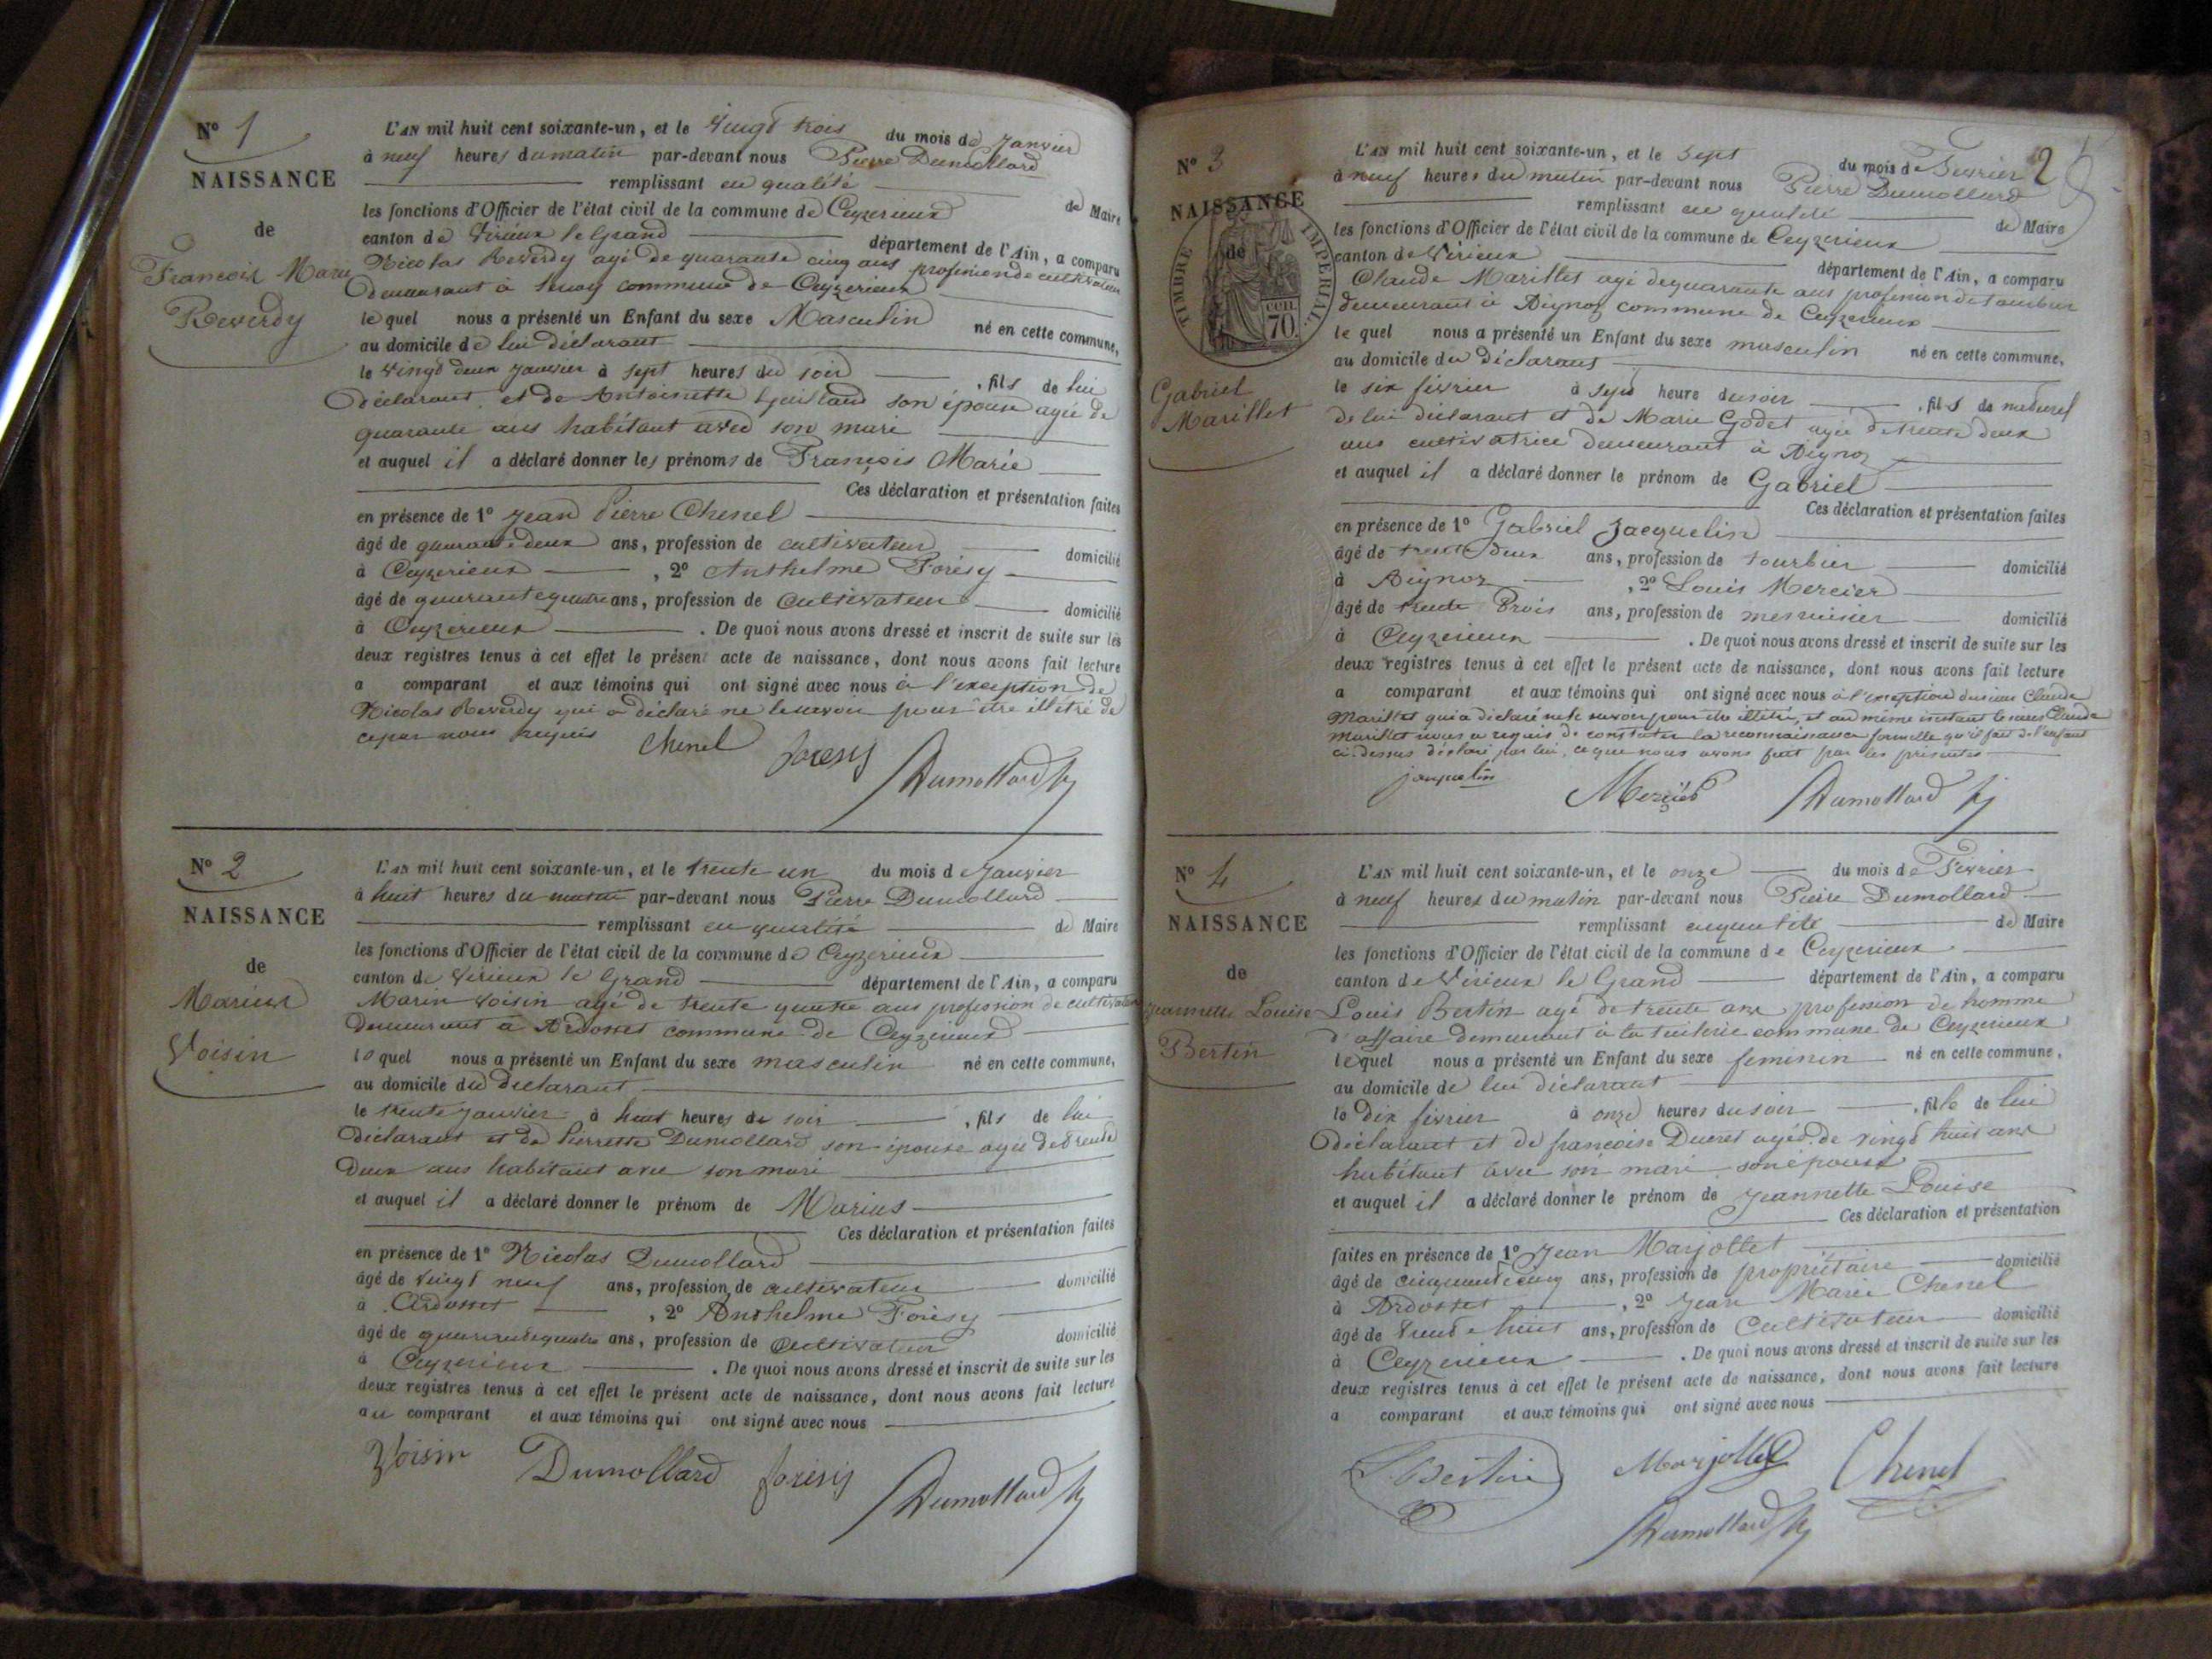 N° 1
NAISSANCE
de
François Marie
Reverdy
L'AN mil huit cent soixante-un, et le vingt trois du mois de Janvier
à neuf heures du matin par-devant nous Pierre Dumollard
remplissant en qualité de Maire
les fonctions d'Officier de l'état civil de la commune de Ceyzerieux
canton de Virieux le Grand département de l'Ain, a comparu
Nicolas Reverdy agé de quarante cinq ans profession de cultivateur
demeurant à commune de Ceyzerieux
le quel nous a présenté un Enfant du sexe Masculin né en cette commune,
au domicile de lui déclarant
le vingt deux Janvier à sept heures du soir , fils de lui
déclarant et de Antoinette son épouse agée de
quarante ans habitant avec son mari
et auquel il a déclaré donner les prénoms de François Marie
Ces déclaration et présentation faites
en présence de 1° Jean Pierre Chenel
âgé de quarante deux ans, profession de cultivateur domicilié
à Ceyzerieux , 2° Anthelme Forésy
âgé de quarante quatre ans, profession de Cultivateur domicilié
à Ceyzerieux . De quoi nous avons dressé et inscrit de suite sur les
deux registres tenus à cet effet le présent acte de naissance, dont nous avons fait lecture
a comparant et aux témoins qui ont signé avec nous à l'exception de
Nicolas Reverdy qui a déclaré ne le savoir pour être illétré de
ce par nous requis Chenel forésy
Dumollard
N° 2
NAISSANCE
de
Marius
Voisin
L'AN mil huit cent soixante-un, et le trente un du mois de Janvier
à huit heures du matin par-devant nous Pierre Dumollard
remplissant en qualité de Maire
les fonctions d'Officier de l'état civil de la commune de Ceyzerieux
canton de Virieux le Grand département de l'Ain, a comparu
Marin Voisin agé de trente quatre ans profession de cultivateur
demeurant à Ardosset commune de Ceyzerieux
le quel nous a présenté un Enfant du sexe masculin né en cette commune,
au domicile du déclarant
le trente Janvier à huit heures du soir , fils de lui
déclarant et de Pierrette Dumollard son épouse agée de trente
deux ans habitant avec son mari
et auquel il a déclaré donner le prénom de Marius
Ces déclaration et présentation faites
en présence de 1° Nicolas Dumollard
âgé de vingt neuf ans, profession de cultivateur domicilié
à Ardosset , 2° Anthelme Forésy
âgé de quarante quatre ans, profession de Cultivateur domicilié
à Ceyzerieux . De quoi nous avons dressé et inscrit de suite sur les
deux registres tenus à cet effet le présent acte de naissance, dont nous avons fait lecture
au comparant et aux témoins qui ont signé avec nous
Voisin Dumollard forésy
Dumollard
2
N° 3
NAISSANCE
de
TIMBRE IMPERIAL
CEN 70.
Gabriel
Marillet
L'AN mil huit cent soixante-un, et le sept du mois de Fevrier
à neuf heures du matin par-devant nous Pierre Dumollard
remplissant en qualité de Maire
les fonctions d'Officier de l'état civil de la commune de Ceyzerieux
canton de Virieux département de l'Ain, a comparu
Claude Marillet agé de quarante ans profession de tourbier
demeurant à Aignoz commune de Ceyzerieux
le quel nous a présenté un Enfant du sexe masculin né en cette commune,
au domicile du déclarant
le six février à sept heure du soir , fils de naturel
de lui déclarant et de Marie Godet agée de trente deux
ans cultivatrice demeurant à Aignoz
et auquel il a déclaré donner le prénom de Gabriel
Ces déclaration et présentation faites
en présence de 1° Gabriel Jacquelin
âgé de trente deux ans, profession de tourbier domicilié
à Aignoz , 2° Louis Mercier
âgé de trente trois ans, profession de menuisier domicilié
à Ceyzerieux . De quoi nous avons dressé et inscrit de suite sur les
deux registres tenus à cet effet le présent acte de naissance, dont nous avons fait lecture
a comparant et aux témoins qui ont signé avec nous à l'exception du sieur Claude
Marillet qui a déclaré ne le savoir pour être illétré, et au même instant le sieur Claude
Marillet nous a requis de constater la reconnaissance formelle qu'il fait de l'enfant
ci-dessus déclaré par lui, ce que nous avons fait par les présentes
jacquelin Mercier Dumollard
N° 4
NAISSANCE
de
Jeannette Louise
Bertin
L'AN mil huit cent soixante-un, et le onze du mois de Fevrier
à neuf heures du matin par-devant nous Pierre Dumollard
remplissant en qualité de Maire
les fonctions d'Officier de l'état civil de la commune de Ceyzerieux
canton de Virieux le Grand département de l'Ain, a comparu
Louis Bertin agé de trente ans profession de homme
d'affaire demeurant à la tuilerie commune de Ceyzerieux
lequel nous a présenté un Enfant du sexe feminin né en cette commune,
au domicile de lui déclarant
le dix février à onze heures du soir , fille de lui
déclarant et de françoise Ducret agée de vingt huit ans
habitant avec son mari son épouse
et auquel il a déclaré donner le prénom de Jeannette Louise
Ces déclaration et présentation
faites en présence de 1° Jean Marjollet
âgé de cinquante cinq ans, profession de propriétaire domicilié
à Ardosset , 2° Jean Marie Chenel
âgé de trente huit ans, profession de Cultivateur domicilié
à Ceyzerieux . De quoi nous avons dressé et inscrit de suite sur les
deux registres tenus à cet effet le présent acte de naissance, dont nous avons fait lecture
a comparant et aux témoins qui ont signé avec nous
Bertin Marjollet Chenel
Dumollard